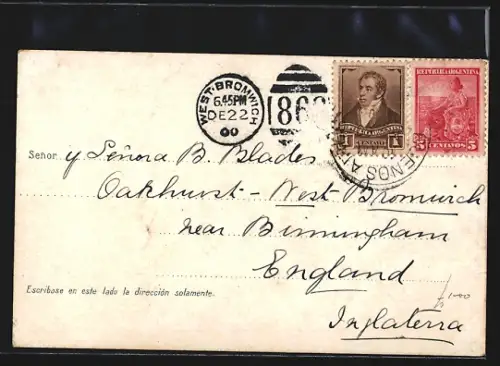 WEST-BROMWICH
6.45PM
DE 22
00
86
REPUBLICA ARGENTINA
1 CENTAVO 1
REPUBLICA ARGENTINA
5 CENTAVOS 5
BUENOS AIRES
Señor y Señora B. Blades
Oakhurst - West Bromwich
near Birmingham
England
Inglaterra
Escríbase en este lado la dirección solamente.